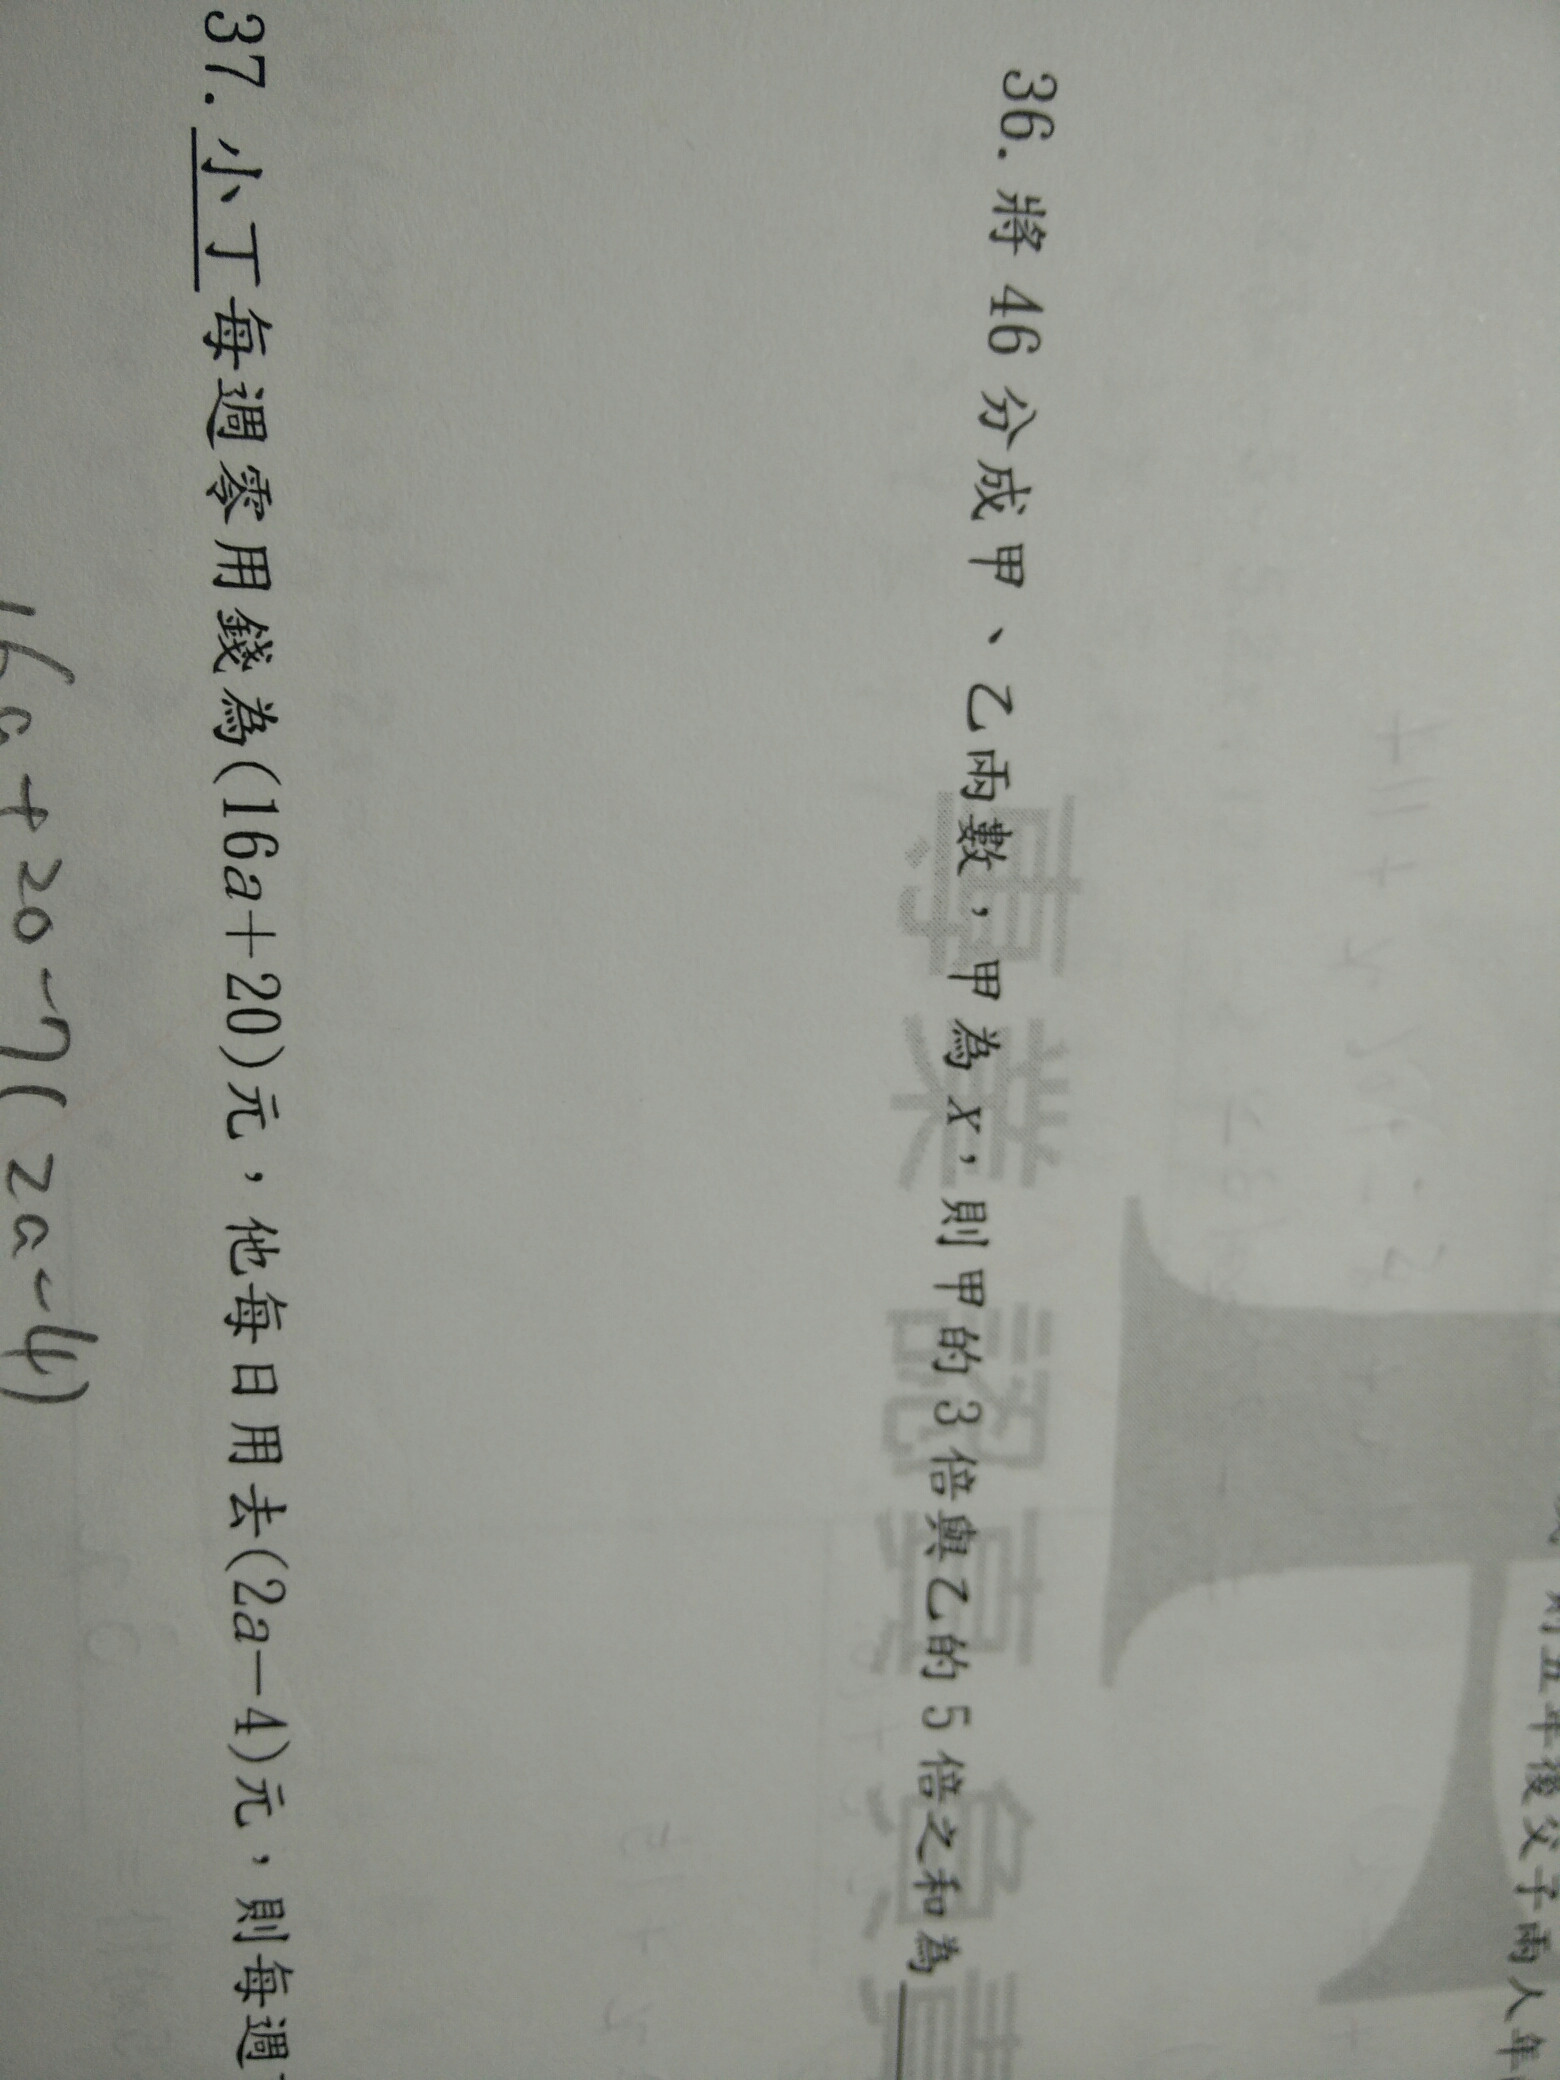 則五年後父子兩人年
36. 將 46 分成甲、乙兩數，甲為 x，則甲的 3 倍與乙的 5 倍之和為
37. 小丁每週零用錢為(16a+20)元，他每日用去(2a－4)元，則每週
16a+20-7(2a-4)